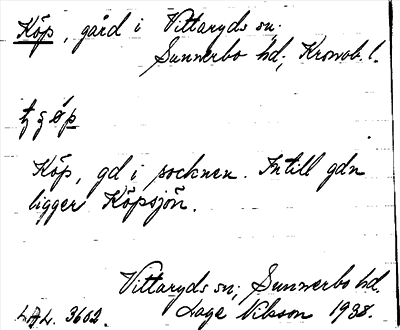 Köp, gård i Vittaryds sn.
Sunnerbo hd., Kronob. l.
Köp, gd i socknen. Intill gdn
ligger Köpsjön.
Vittaryds sn; Sunnerbo hd.
3602. Lage Nilsson 1938.